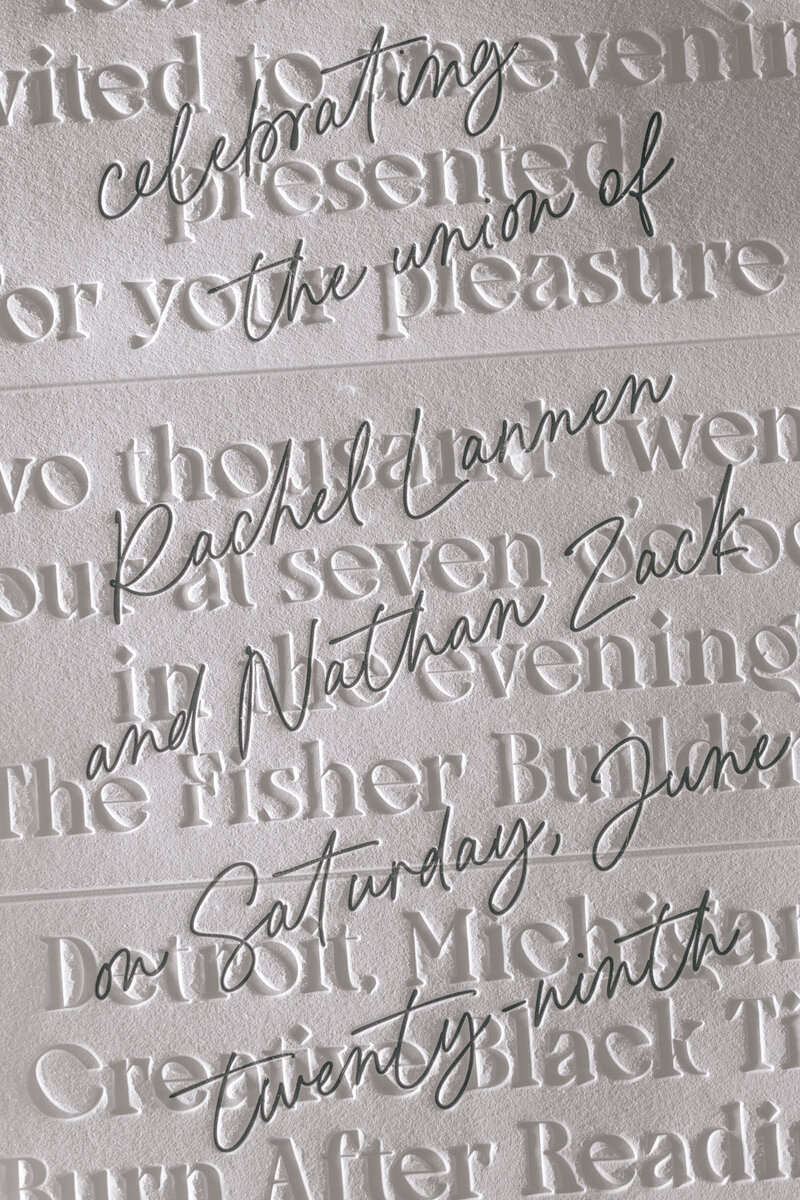 vited to an evenin
celebrating
presented
the union of
for your pleasure
wo thousand twen
Rachel Lannen
our at seven o'cloc
and Nathan Zack
in the evening
The Fisher Buildin
on Saturday, June
Detroit, Michigan
twenty-ninth
Creative Black Ti
Burn After Readin